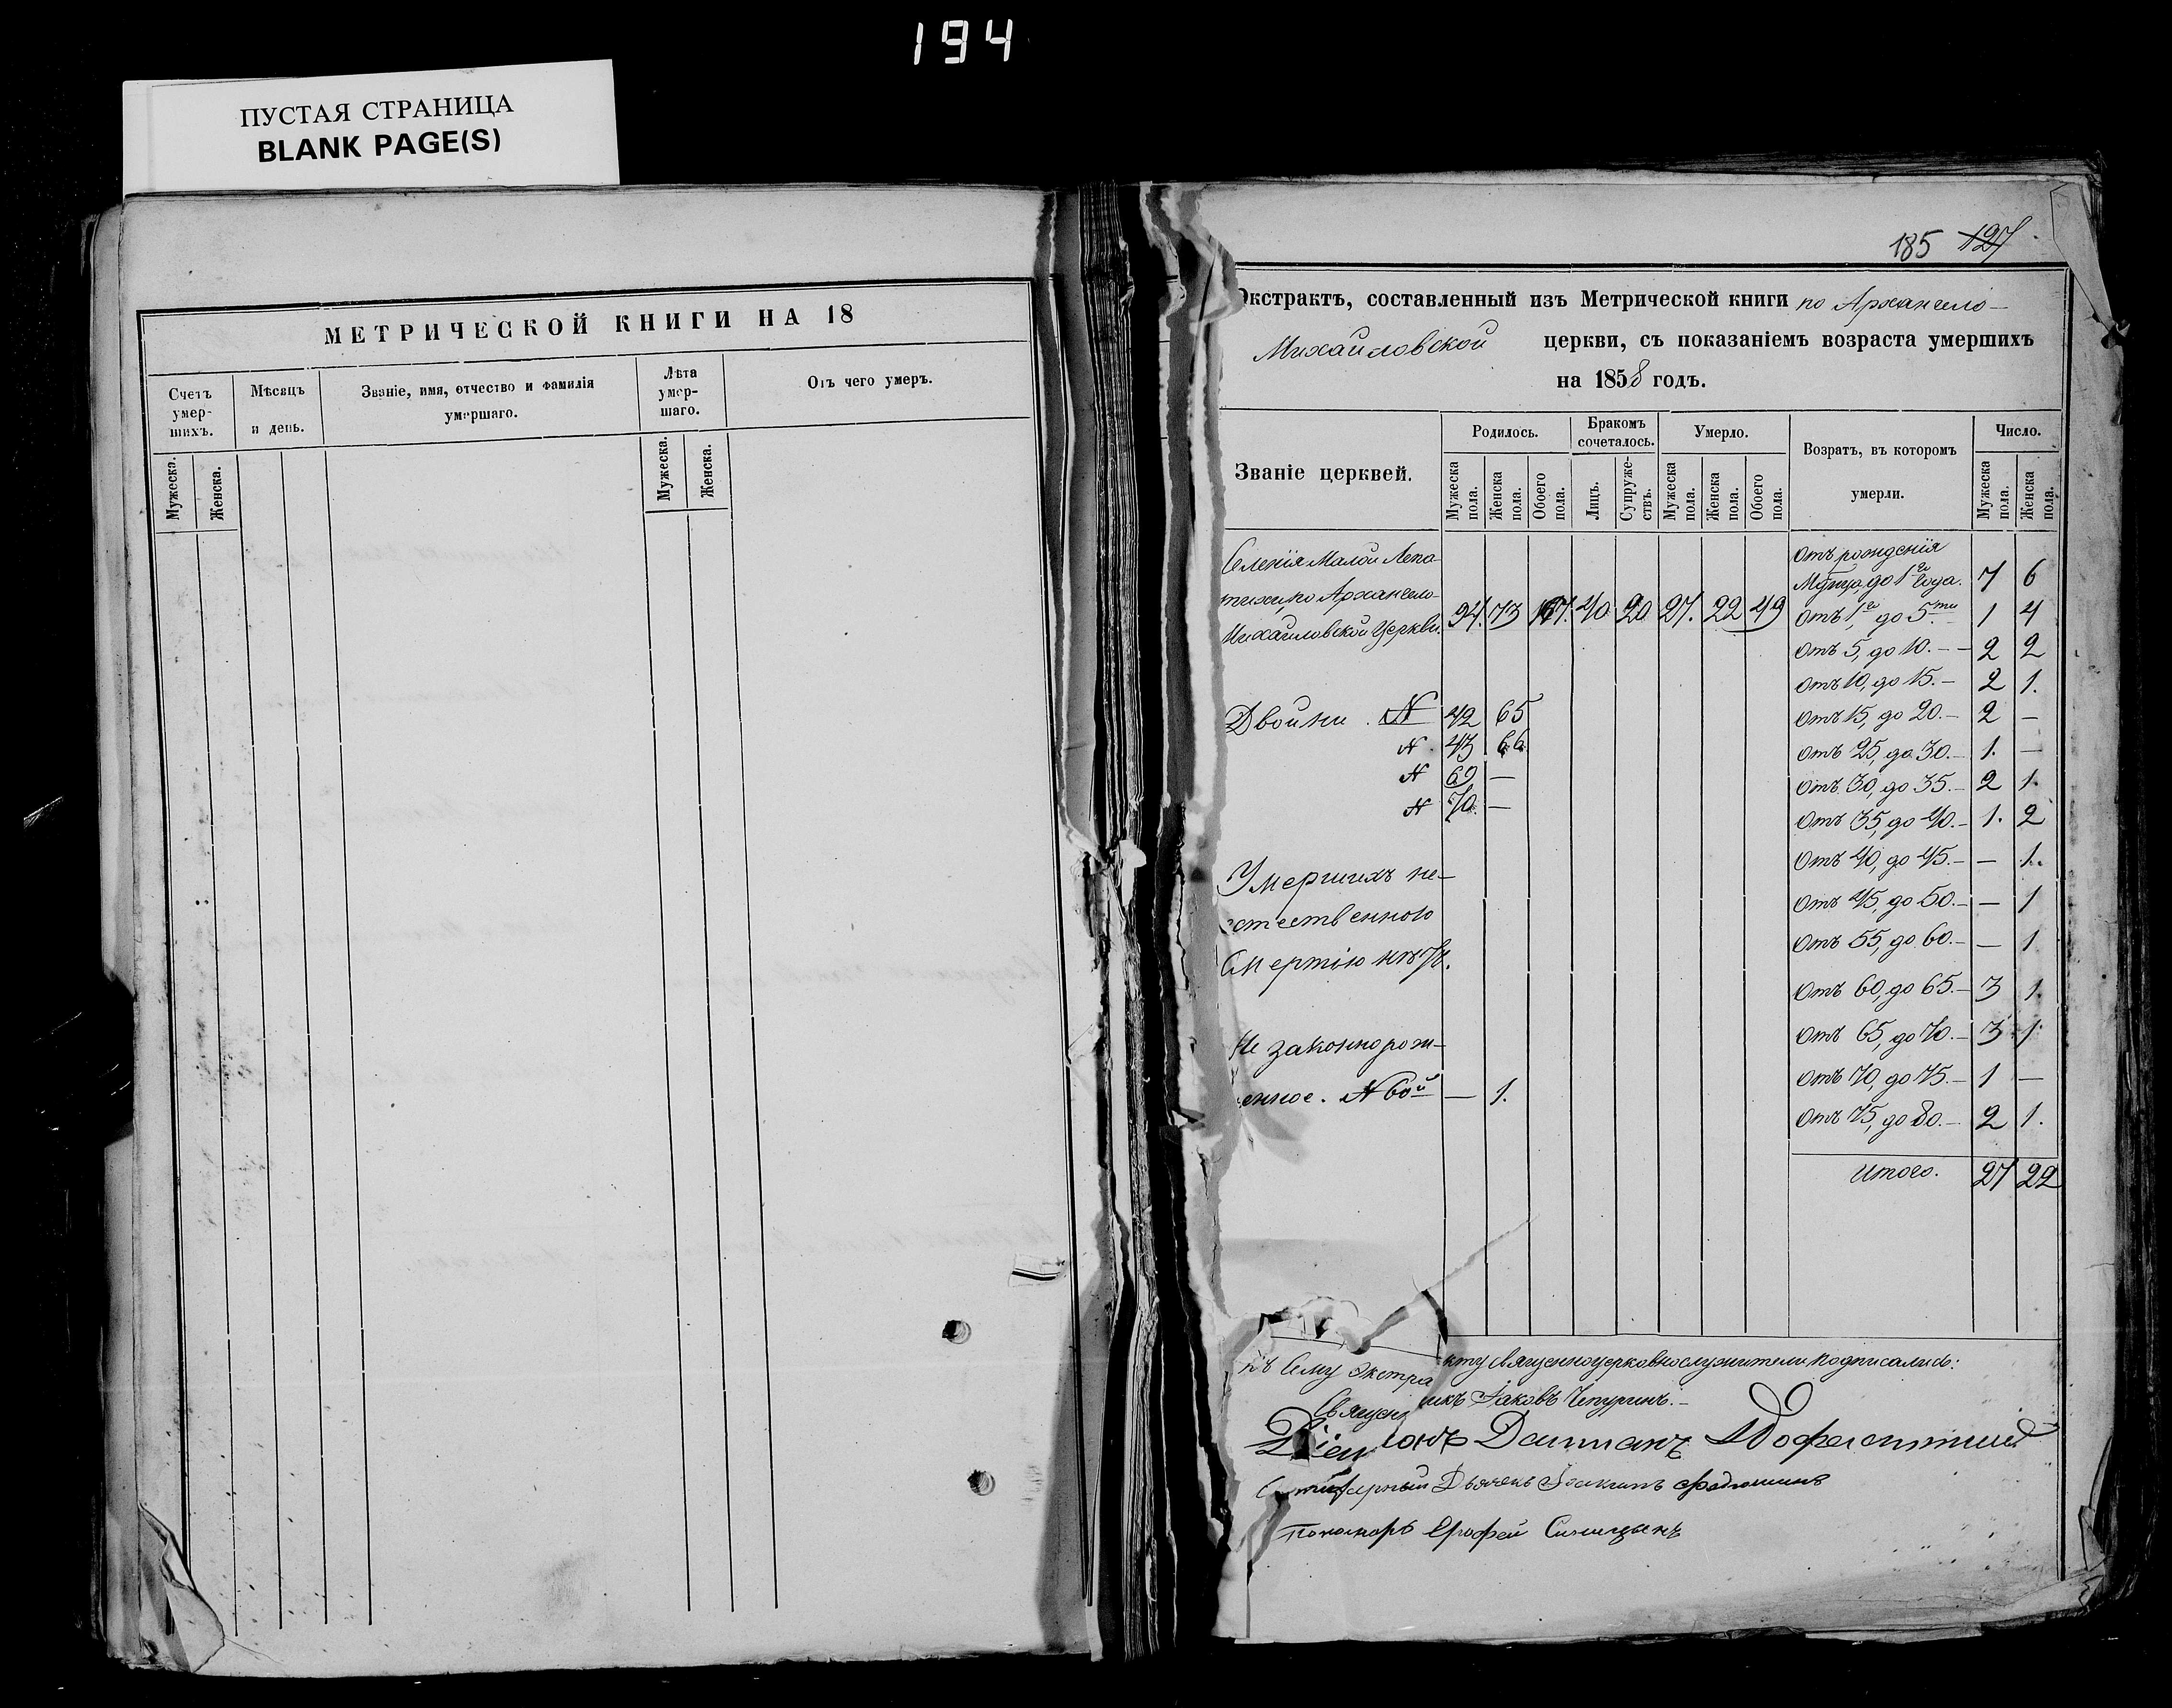 194
ПУСТАЯ СТРАНИЦА
BLANK PAGE(S)
МЕТРИЧЕСКОЙ КНИГИ НА 18
Счетъ умерших. Мѣсяцъ и день. Званіе, имя, отчество и фамилія умершаго. Лѣта умершаго. Отъ чего умеръ.
Мужеска. Женска. Мужеска. Женска.
185 127
Экстрактъ, составленный изъ Метрической книги по Архангело-
Михайловской церкви, съ показаніемъ возраста умершихъ
на 1858 годъ.
Званіе церквей. Родилось. Бракомъ сочеталось. Умерло. Возратъ, въ которомъ умерли. Число.
Мужеска пола. Женска пола. Обоего пола. Лицъ. Супружествъ. Мужеска пола. Женска пола. Обоего пола. Мужеска пола. Женска пола.
Селенія Малой Лепа-
тихи, по Архангело-
Михайловской Церкви. 94. 73 167. 40 20 27. 22 49
Отъ рожденія
до 1го года. 7 6
Отъ 1го до 5ти 1 4
Отъ 5, до 10. — 2 2
Отъ 10, до 15. — 2 1.
Отъ 15, до 20. — 2 —
Отъ 25, до 30. — 1. —
Отъ 30, до 35. — 2 1.
Отъ 35, до 40. — 1. 2
Отъ 40, до 45. — — 1.
Отъ 45, до 50. — — 1
Отъ 55, до 60. — — 1
Отъ 60, до 65. — 3 1.
Отъ 65, до 70. — 3 1
Отъ 70, до 75. — 1 —
Отъ 75, до 80. — 2 1.
Итого. 27 22
Двойни . N 42 65
N . 43 66
N 69 —
N 70. —
Умершихъ не-
естественною
Смертію нѣтъ.
Не законнорож-
енное. N 60й — 1.
къ Сему Экстракту Священноцерковнослужители подписались:
Священникъ Іаковъ Чепуринъ. —
Діаконъ
Дьячекъ
Пономарь Ерофей Синицынъ